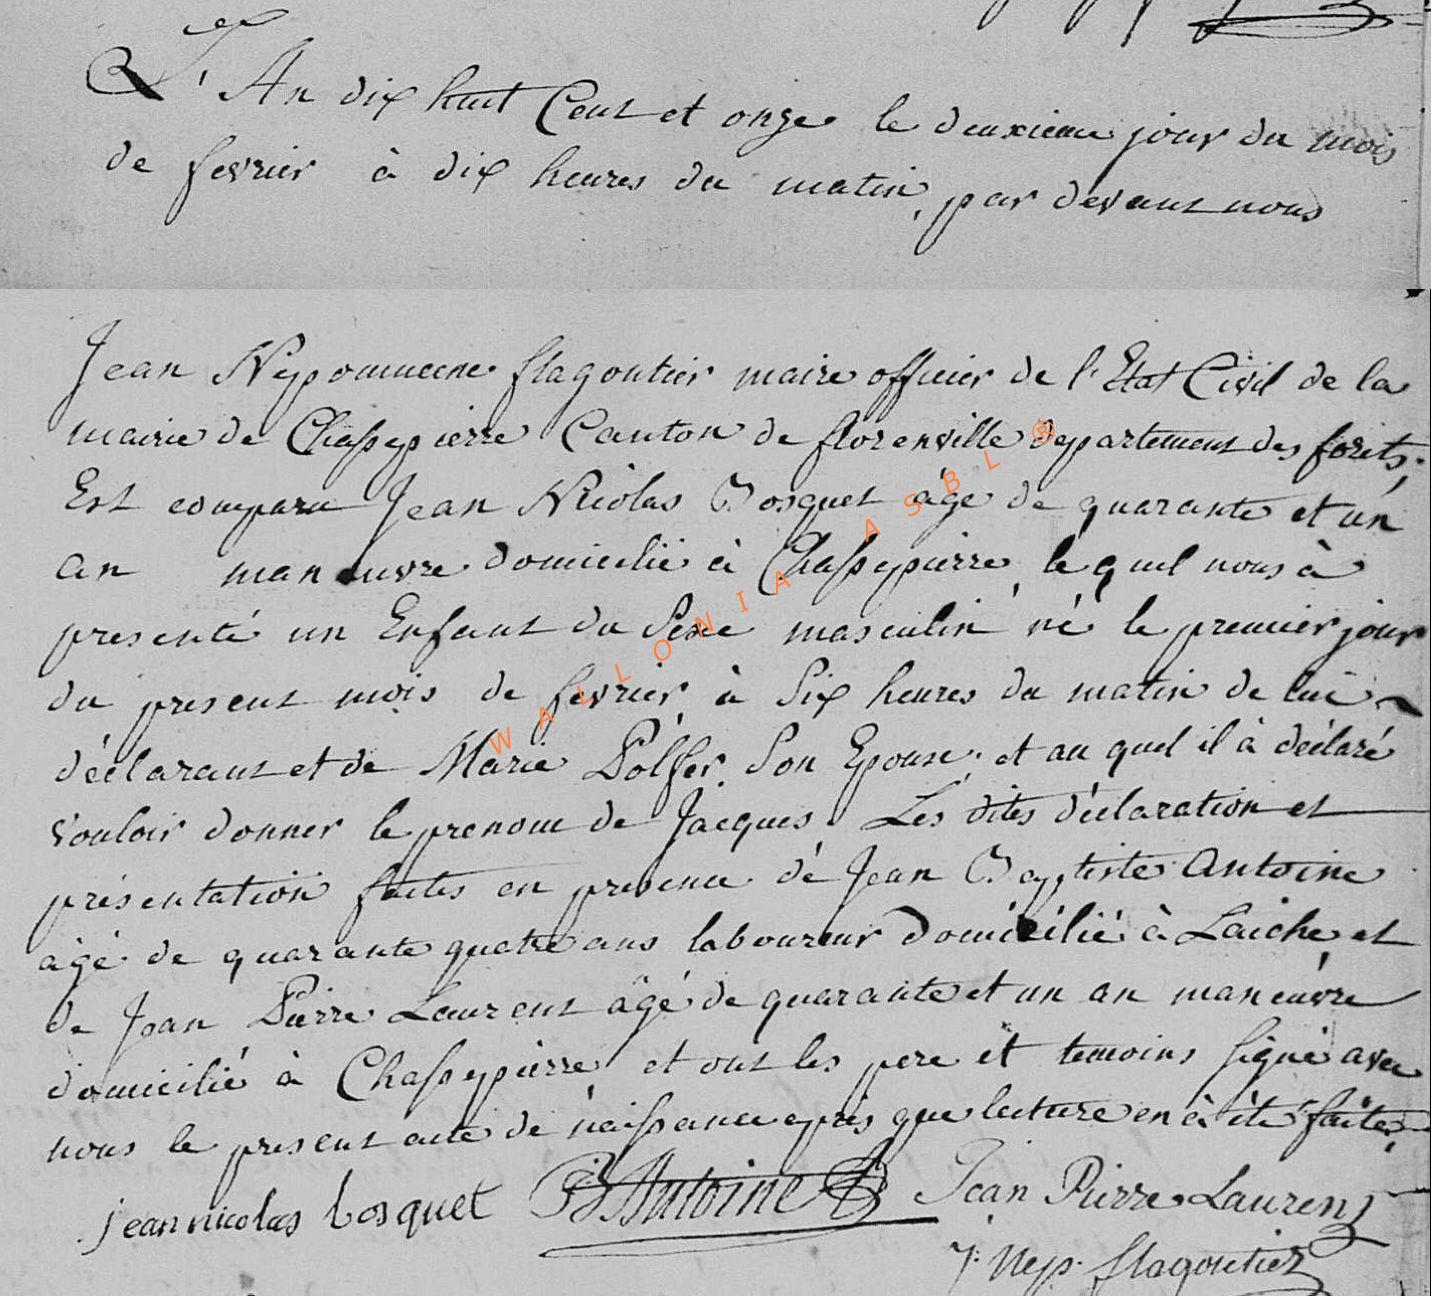 L'An dix huit Cent et onze le deuxieme jour du mois
de fevrier à dix heures du matin, par devant nous
Jean Nepomucene flagontier maire officier de l'Etat Civil de la
mairie de Chassepierre Canton de florenville departement des forêts,
Est comparu Jean Nicolas Bosquet âgé de quarante et un
an manœuvre domicilié à Chassepierre, lequel nous à
presenté un Enfant du Sexe masculin né le premier jour
du present mois de fevrier à Six heures du matin de lui
déclarant et de Marie Polfer Son Epouse, et au quel il à déclaré
vouloir donner le prenom de Jacques. Les dites déclaration et
présentation faites en presence de Jean Baptiste Antoine
âgé de quarante quatre ans laboureur domicilié à Laiche et
de Jean Pierre Laurent âgé de quarante et un an manœuvre
domicilié à Chassepierre et ont les pere et temoins signé avec
nous le present acte de naissance après que lecture en à été faite,
jean nicolas bosquet JB Antoine Jean Pierre Laurent
J: Nep. flagontier
WALLONIA ASBL ®